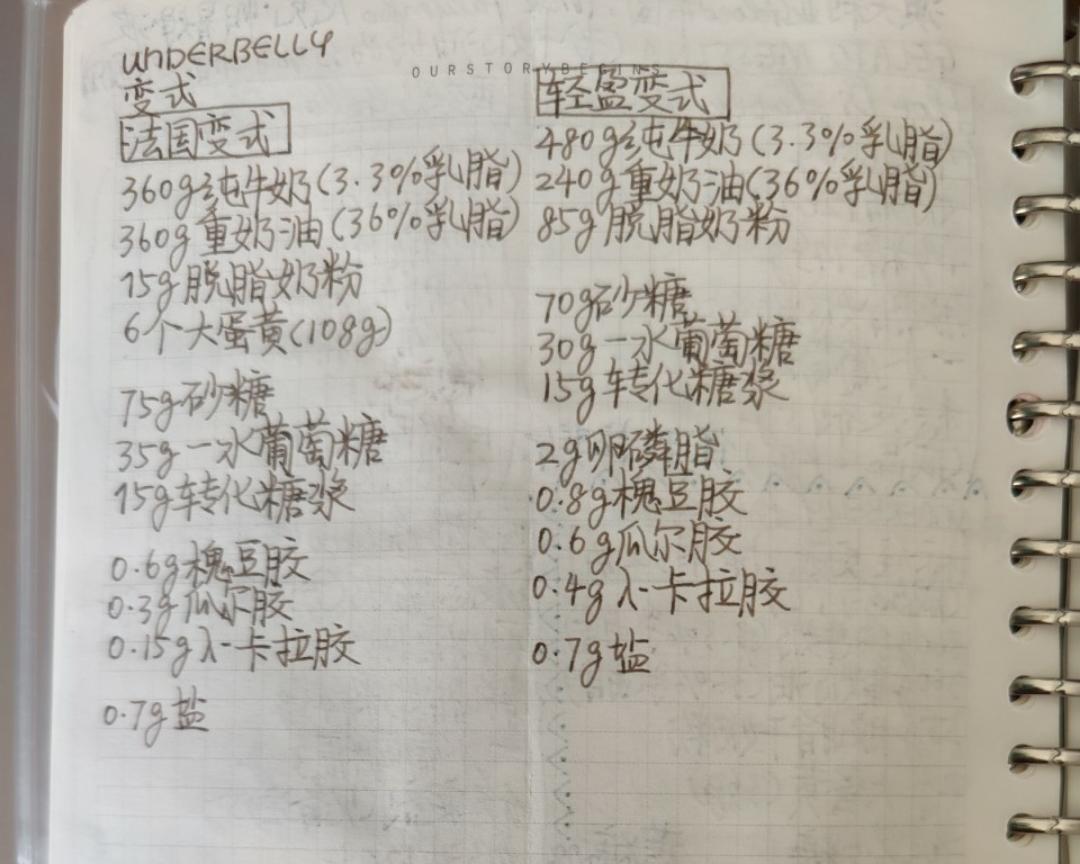 UNDERBELLY
变式
法国变式
360g纯牛奶(3.3%乳脂)
360g重奶油(36%乳脂)
15g脱脂奶粉
6个大蛋黄(108g)
75g砂糖
35g一水葡萄糖
15g转化糖浆
0.6g槐豆胶
0.3g瓜尔胶
0.15gλ-卡拉胶
0.7g盐
OURSTORYBEGINS
轻盈变式
480g纯牛奶(3.3%乳脂)
240g重奶油(36%乳脂)
85g脱脂奶粉
70g砂糖
30g一水葡萄糖
15g转化糖浆
2g卵磷脂
0.8g槐豆胶
0.6g瓜尔胶
0.4gλ-卡拉胶
0.7g盐